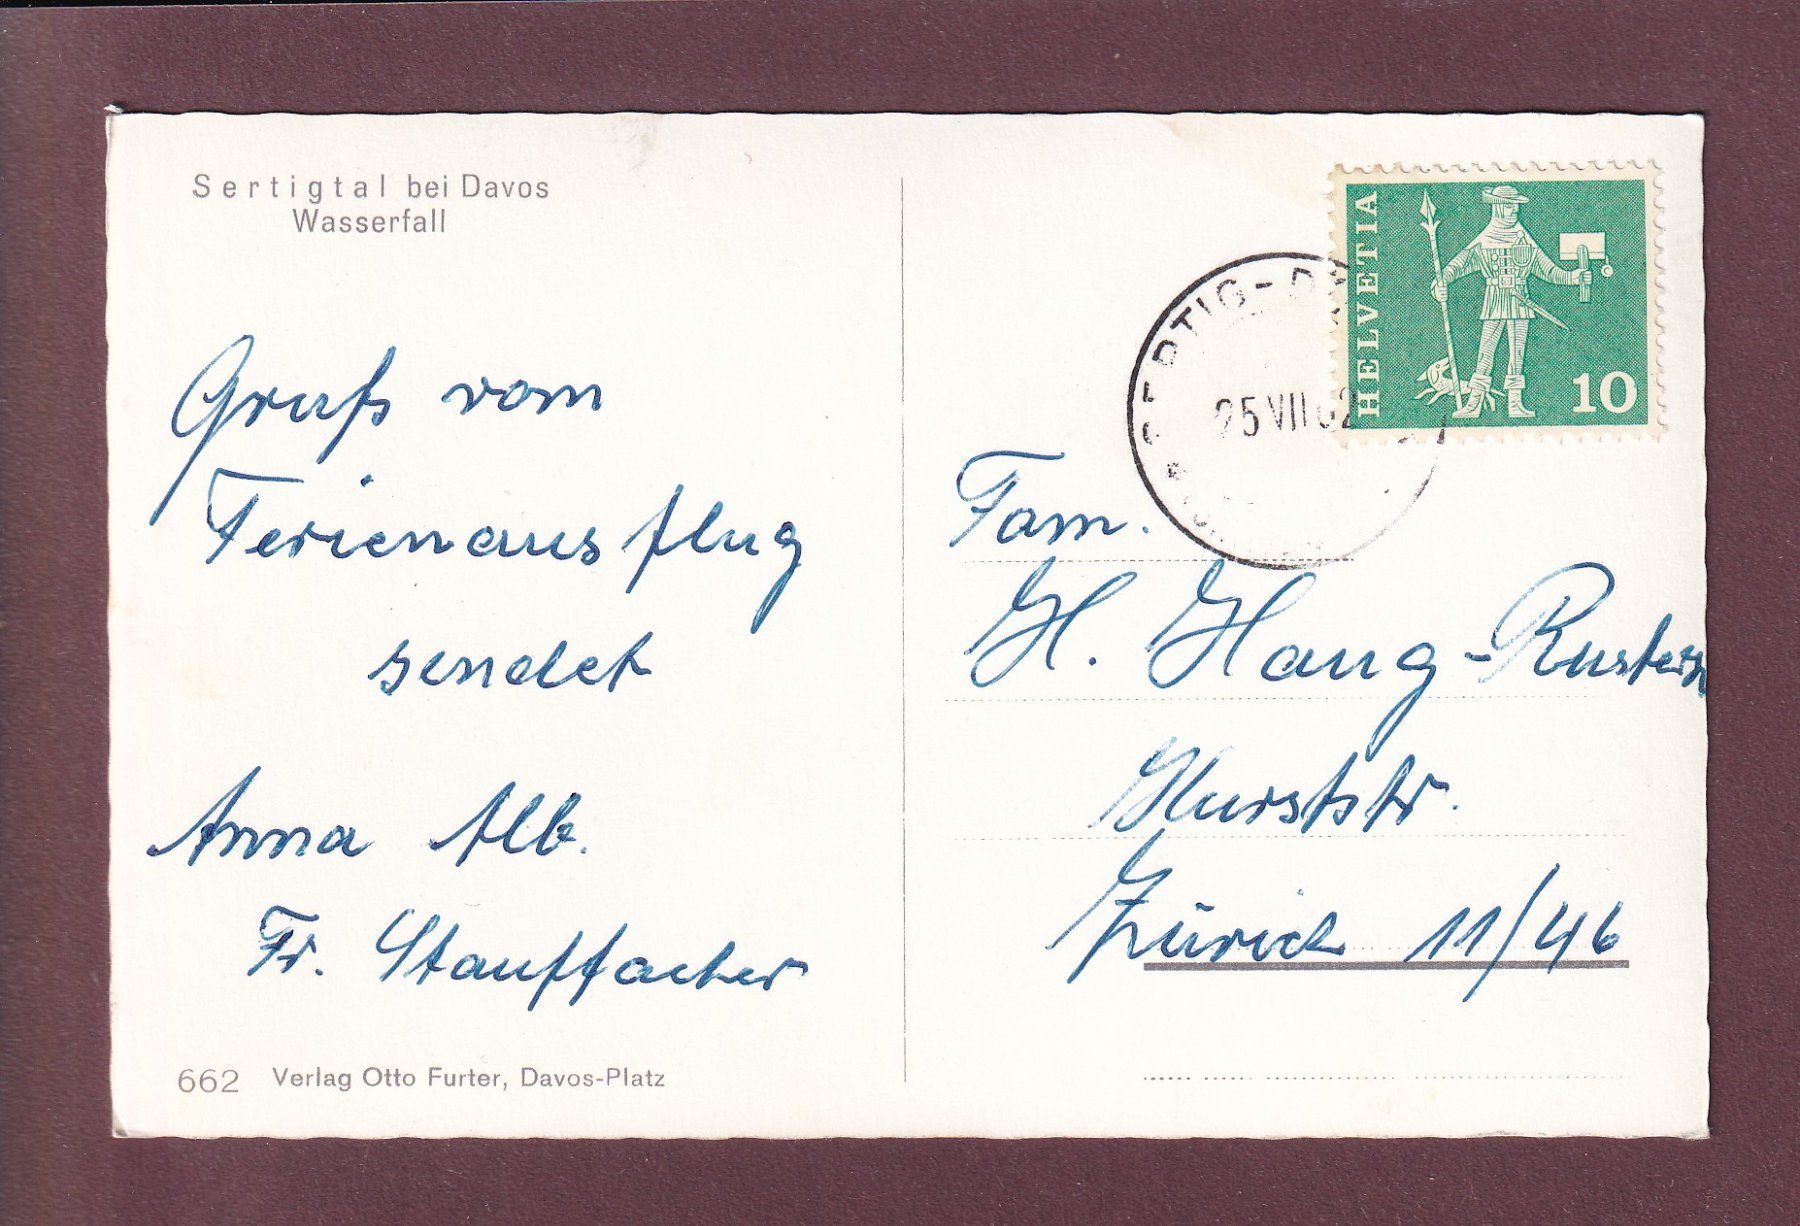 Sertigtal bei Davos
Wasserfall
Gruß vom
Ferienausflug
sendet
Anna Alb.
Fr. Stauffacher
662 Verlag Otto Furter, Davos-Platz
HELVETIA
10
SERTIG-D
25 VII 62
Fam.
H. Haug-Rusterh
Hurststr.
Zürich 11/46